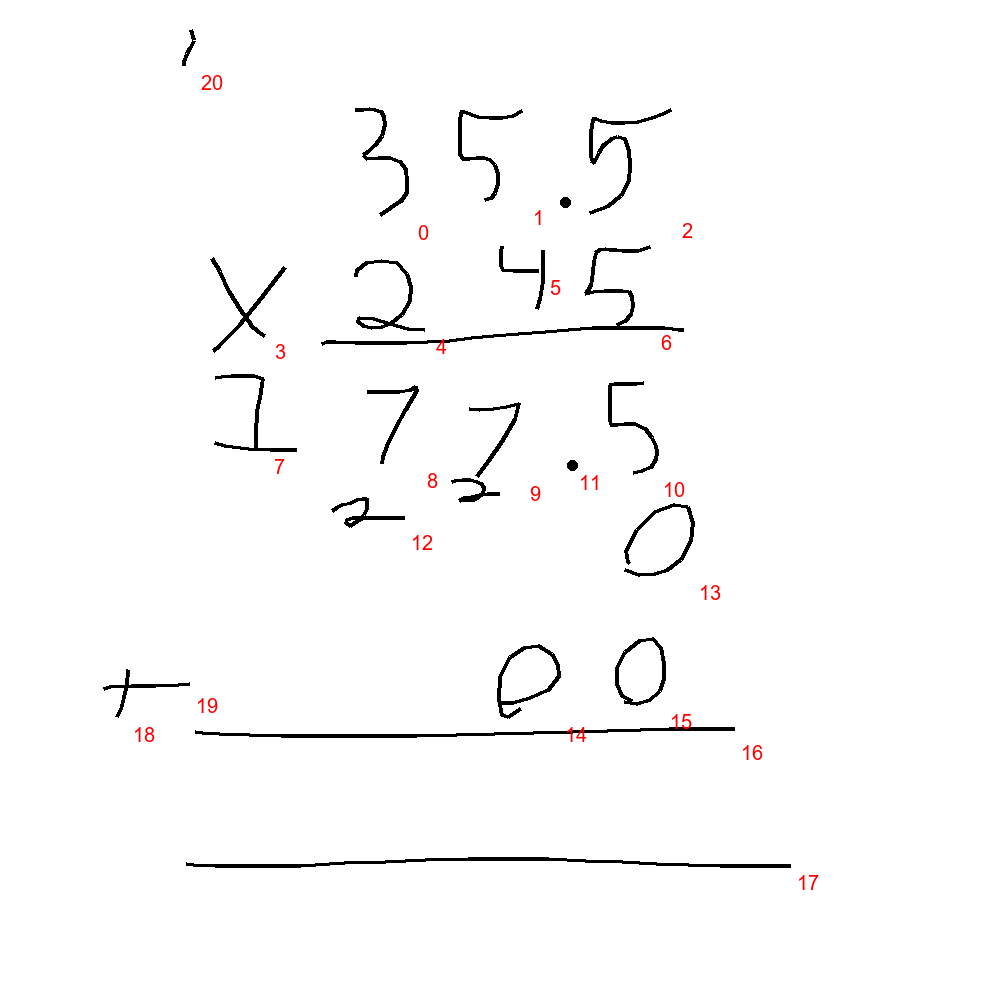 20
355.5
0 1 2
x 245
3 4 5 6
1777.5
7 8 9 11 10
22
12
0
13
+ 00
18 19 14 15
16
17